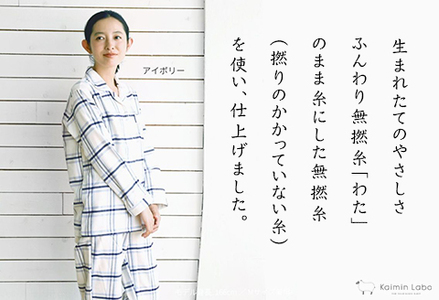 生まれたてのやさしさ
ふんわり無撚糸「わた」
のまま糸にした無撚糸
(撚りのかかっていない糸)
を使い、仕上げました。
アイボリー
Kaimin Labo